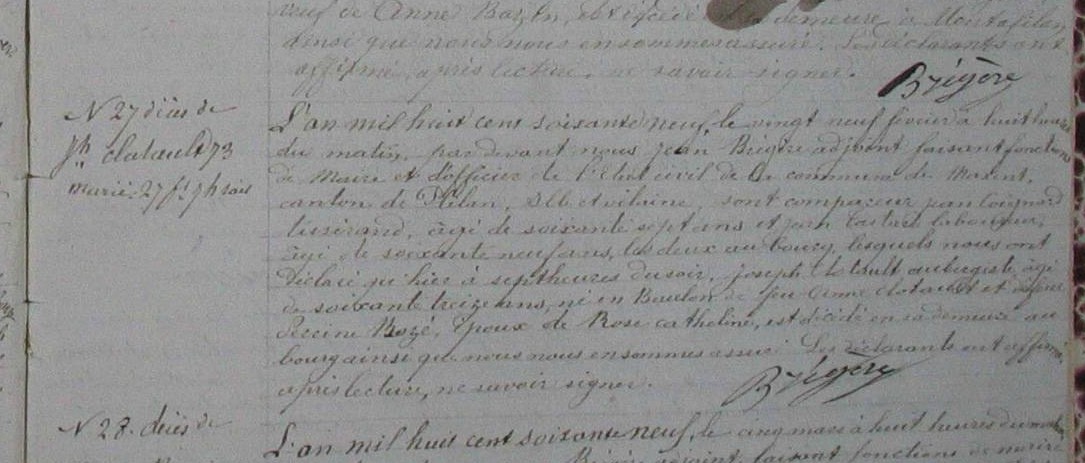 neuf de Anne Bazin, est décédé demeure, à Montafilan,
ainsi que nous nous en sommes assuré. Les déclarants ont
affirmé, après lecture, ne savoir signer.
Brégère
N 27 décès de
Jh. Clotault 73
marié. 27 fr 7h soir
L'an mil huit cent soixante neuf, le vingt neuf février à huit heures
du matin, par devant nous Jean Brégère adjoint faisant fonctions
de Maire et d'officier de l'Etat civil de la commune de Maxent,
canton de Plélan, Ille et vilaine, sont comparus jean Coignard
tisserand, âgé de soixante sept ans et jean laboureur,
âgé de soixante neuf ans, les deux au bourg, lesquels nous ont
déclaré qu'hier à sept heures du soir, joseph Clotault aubergiste, âgé
de soixante treize ans, né en Baulon de feu Anne clotault et de feue
Perrine Bozé, époux de Rose catheline, est décédé en sa demeure au
bourg ainsi que nous nous en sommes assuré. Les déclarants ont affirmé,
après lecture, ne savoir signer.
Brégère
N 28. décès de
L'an mil huit cent soixante neuf, le cinq mars à huit heures du matin,
adjoint, faisant fonctions de maire